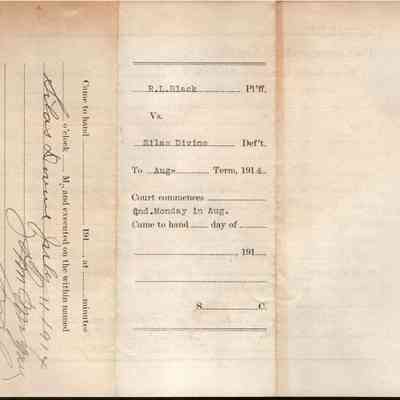 R.L.Black Pl'ff.
Vs.
Silas Divine Def't.
To Aug- Term, 1914.
Court commences
2nd.Monday in Aug.
Came to hand day of
, 191
S. C.
Came to hand 191 , at minutes
o'clock M., and executed on the within named
Silas Divine July 11 1914
John